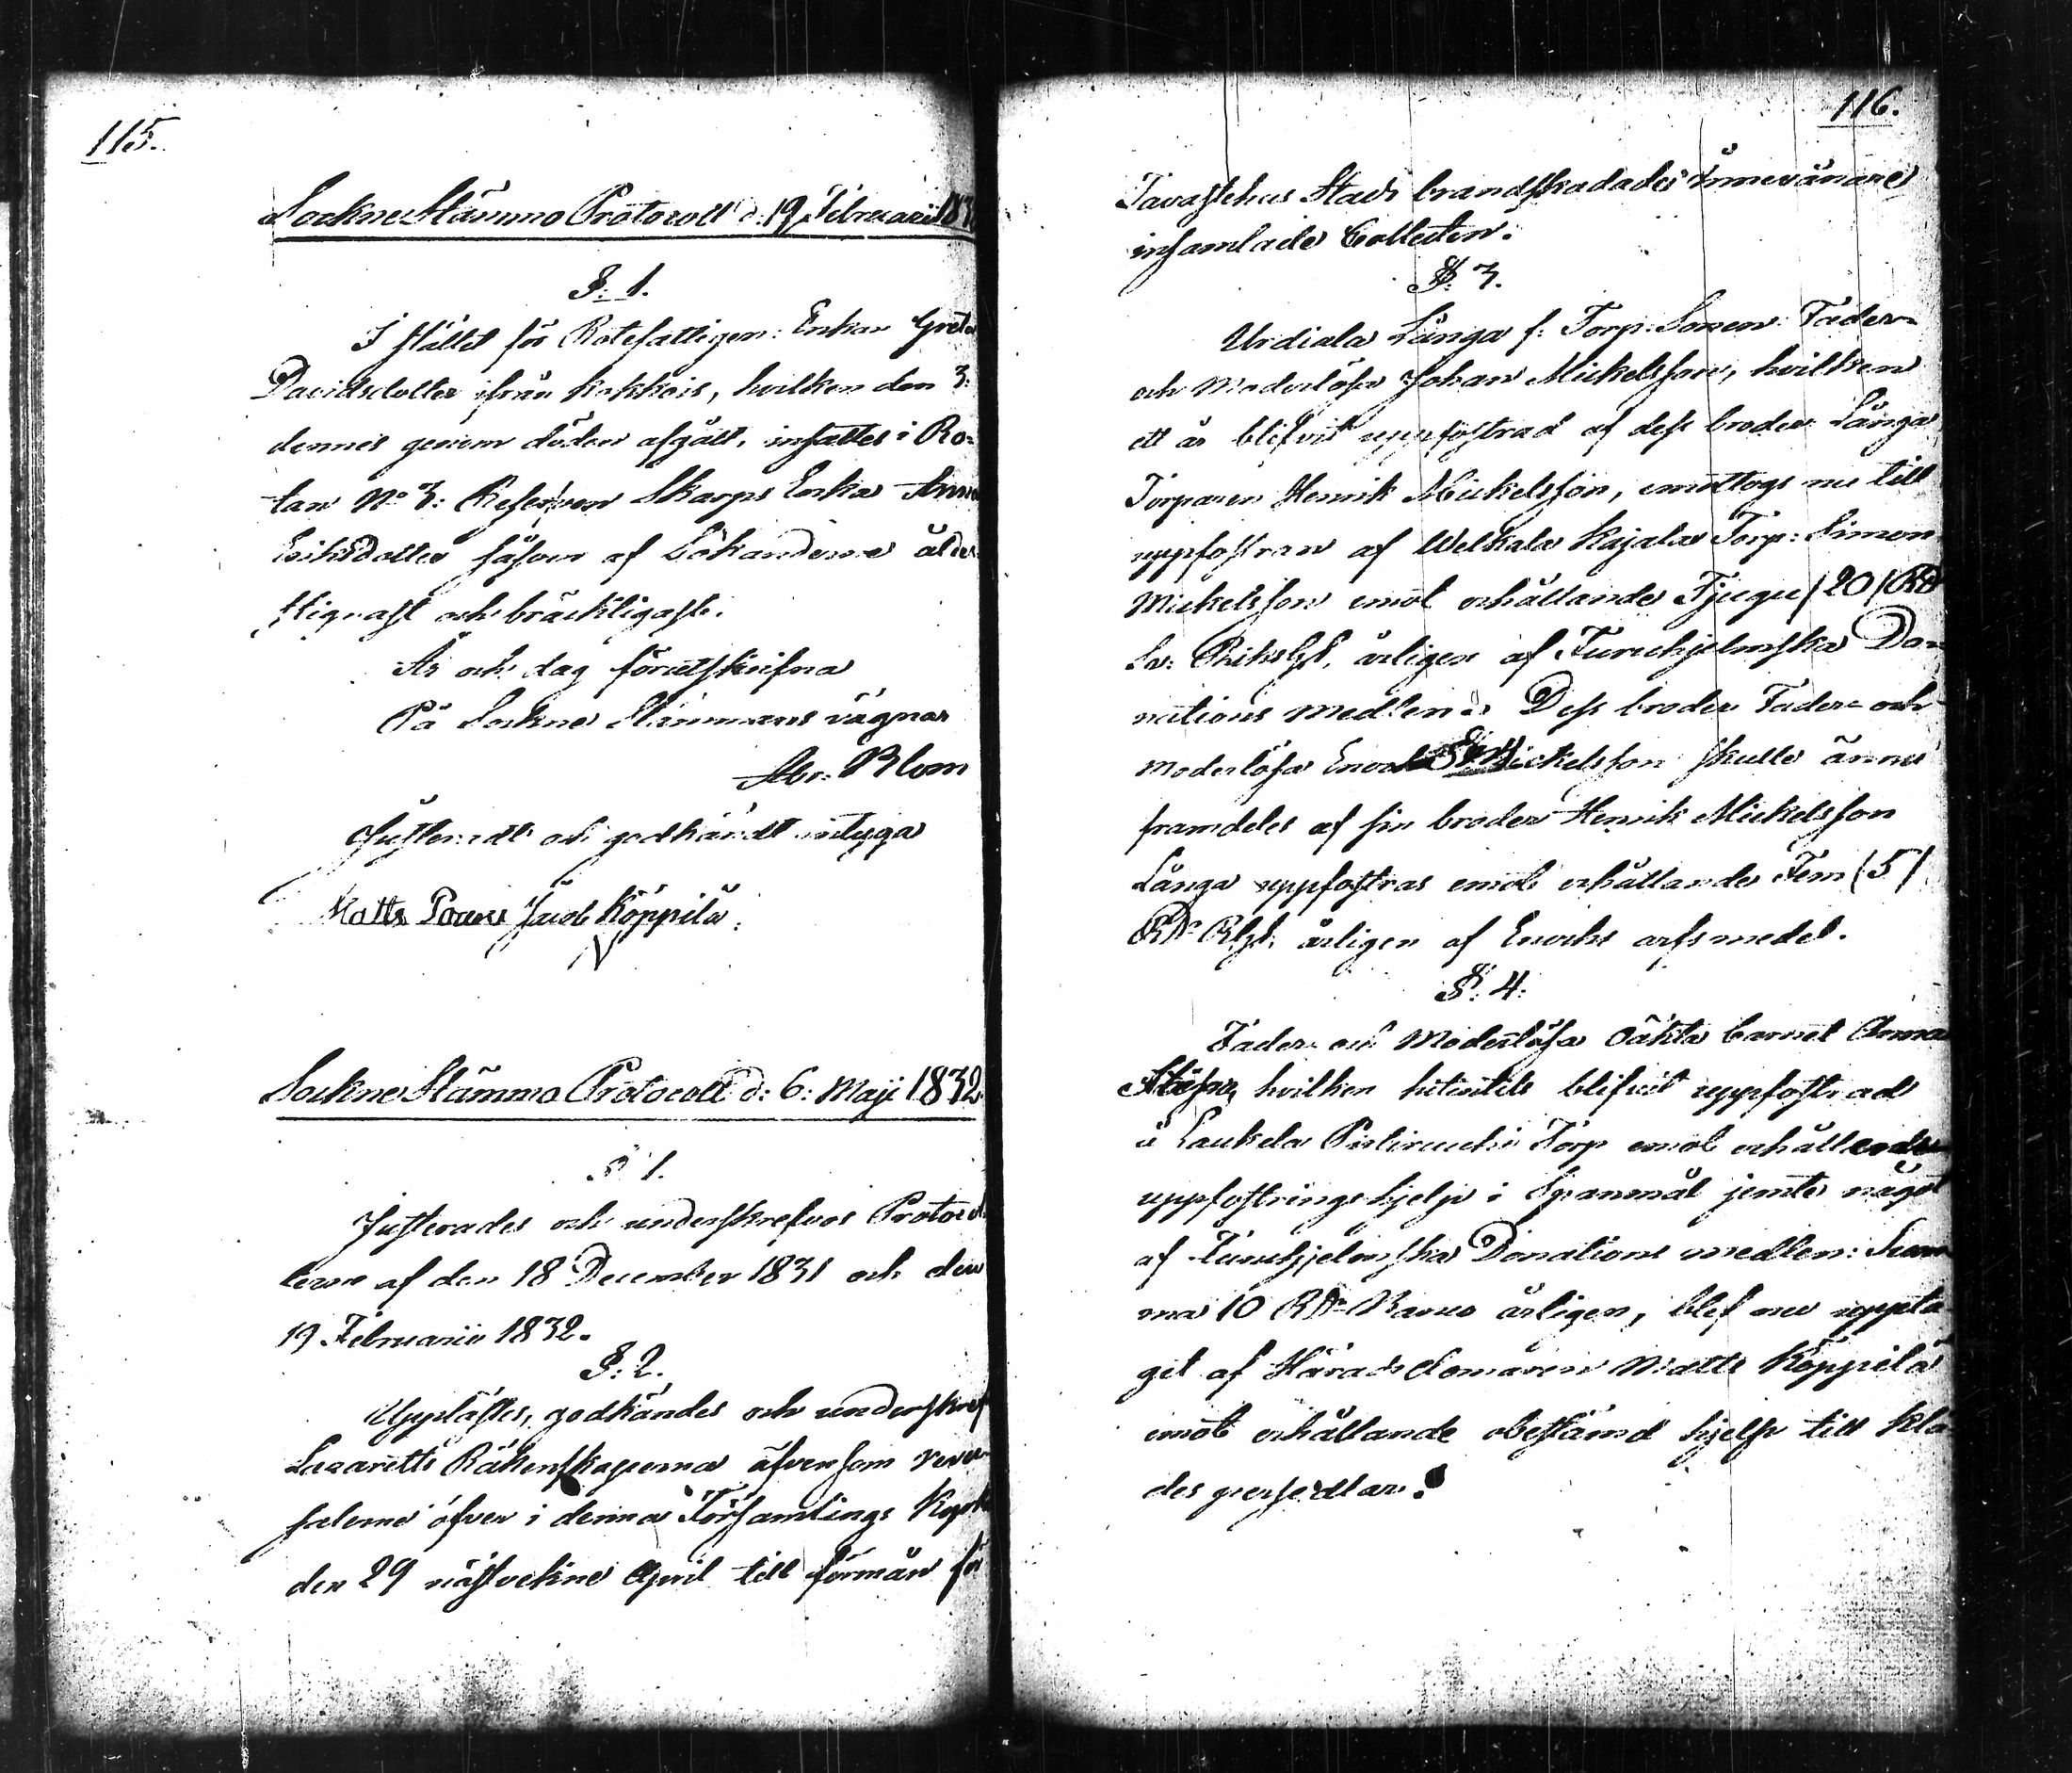 115.
SockneStämmo Protocoll d. 19 Februarii 183
§. 1.
I stället för Rotefattigen: Enkan Greta
Davidsdotter ifrån Kokkois, hvilken den 3:
dennes genom döden afgått, insattes i Ro-
tan No 3: Reserven Skarps Enka Anna
Eriksdotter såsom af Sökanderne ålder
stignast och bräckligast.
År och dag förutskrifna
På Sockne Stämmans vägnar
Abr: Blom
Justeradt och godkändt intyga
Matts Jacob Köppilä.
SockneStämmo Protocoll d: 6: Maji 1832
§ 1.
Justerades och underskrefvos Protocol
lerne af den 18 December 1831 och den
19 Februarii 1832.
§. 2.
Upplästes, godkändes och underskref
Lazaretts Räkenskaperna äfvensom rever
salerne öfver i denna Församlings Kyrka
den 29 nästvekne April till förmån för
116.
Tavastehus Stads brandskadades Innevånare
insamlade Collecten.
§. 3.
Urdiala Långa f: Torp: Sonen: Fader-
och Moderlösa Johan Mickelsson, hvilken
ett år blifvit uppfostrad af dess broder Långa
Torparen Henrik Mickelsson, emottogs nu till
uppfostran af Welkala Kajala Torp: Simon
Mickelsson emot erhållande Tjugu (20) RD
Sv: Riksgs. årligen af Furuhjelmska Do-
nations medlen. Dess broder Fader- och
Moderlösa Enoch Mickelsson skulle ännu
framdeles af sin broder Henrik Mickelsson
Långa uppfostras emot erhållande Fem (5)
RDr Rgs. årligen af Enochs arfsmedel.
§. 4.
Fader- och Moderlösa oäkta barnet Anna
hvilken hitintils blifvit uppfostrad
å Laukela Torp emot erhållande
uppfostringshjelp i Spanmål jemte något
af Furuhjelmska Donations medlen: Sum
ma 10 RDr Banco årligen, blef nu uppta
git af Häradsdomaren Matts Köppilä
emot erhållande obestämd hjelp till klä
despersedlar.